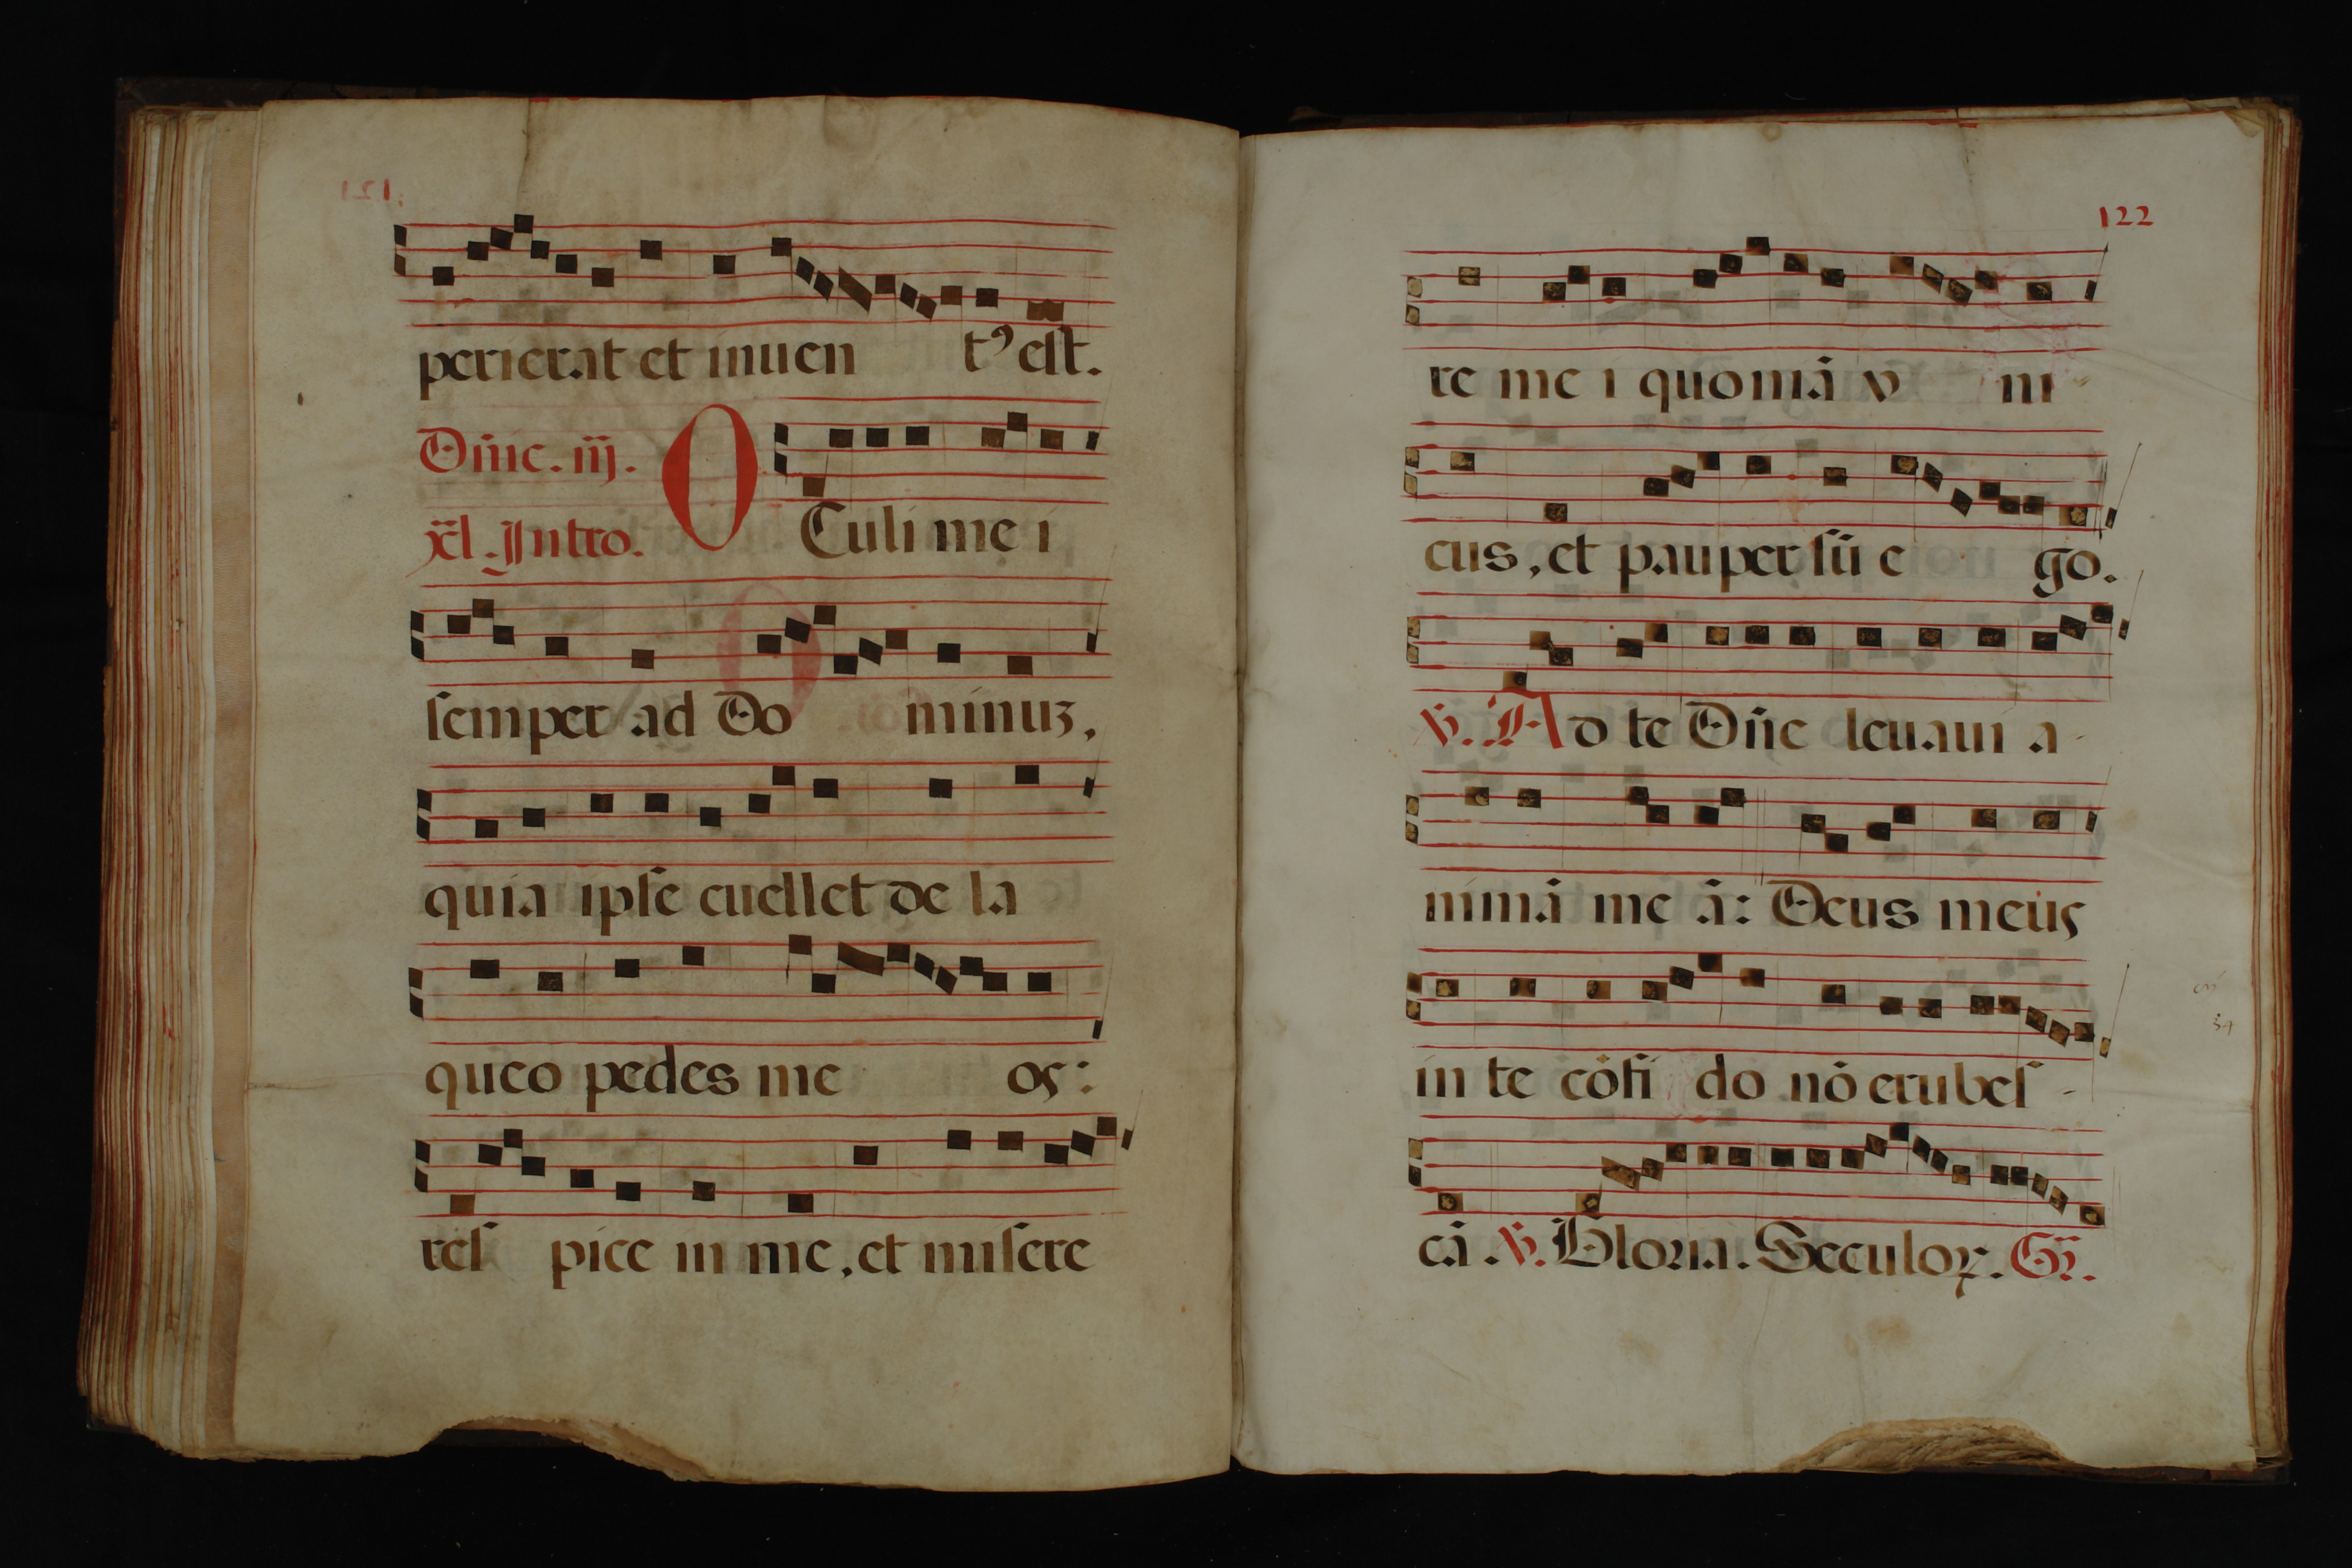 perierat et inuen tꝰ est.
Dñic. iij. O Culi me i
xl̈. Intro.
semper ad Do minuʒ,
quia ipse euellet de la
queo pedes me os:
res pice in me, et misere
122
re me i quoniā v ni-
cus, et pauper sū e go.
℣. Ad te Dñe leuaui a-
nimā me ā: Deus meus
in te cōfi do nō erubes-
cā. ℣. Gloria. Seculoꝝ. Gr̃.